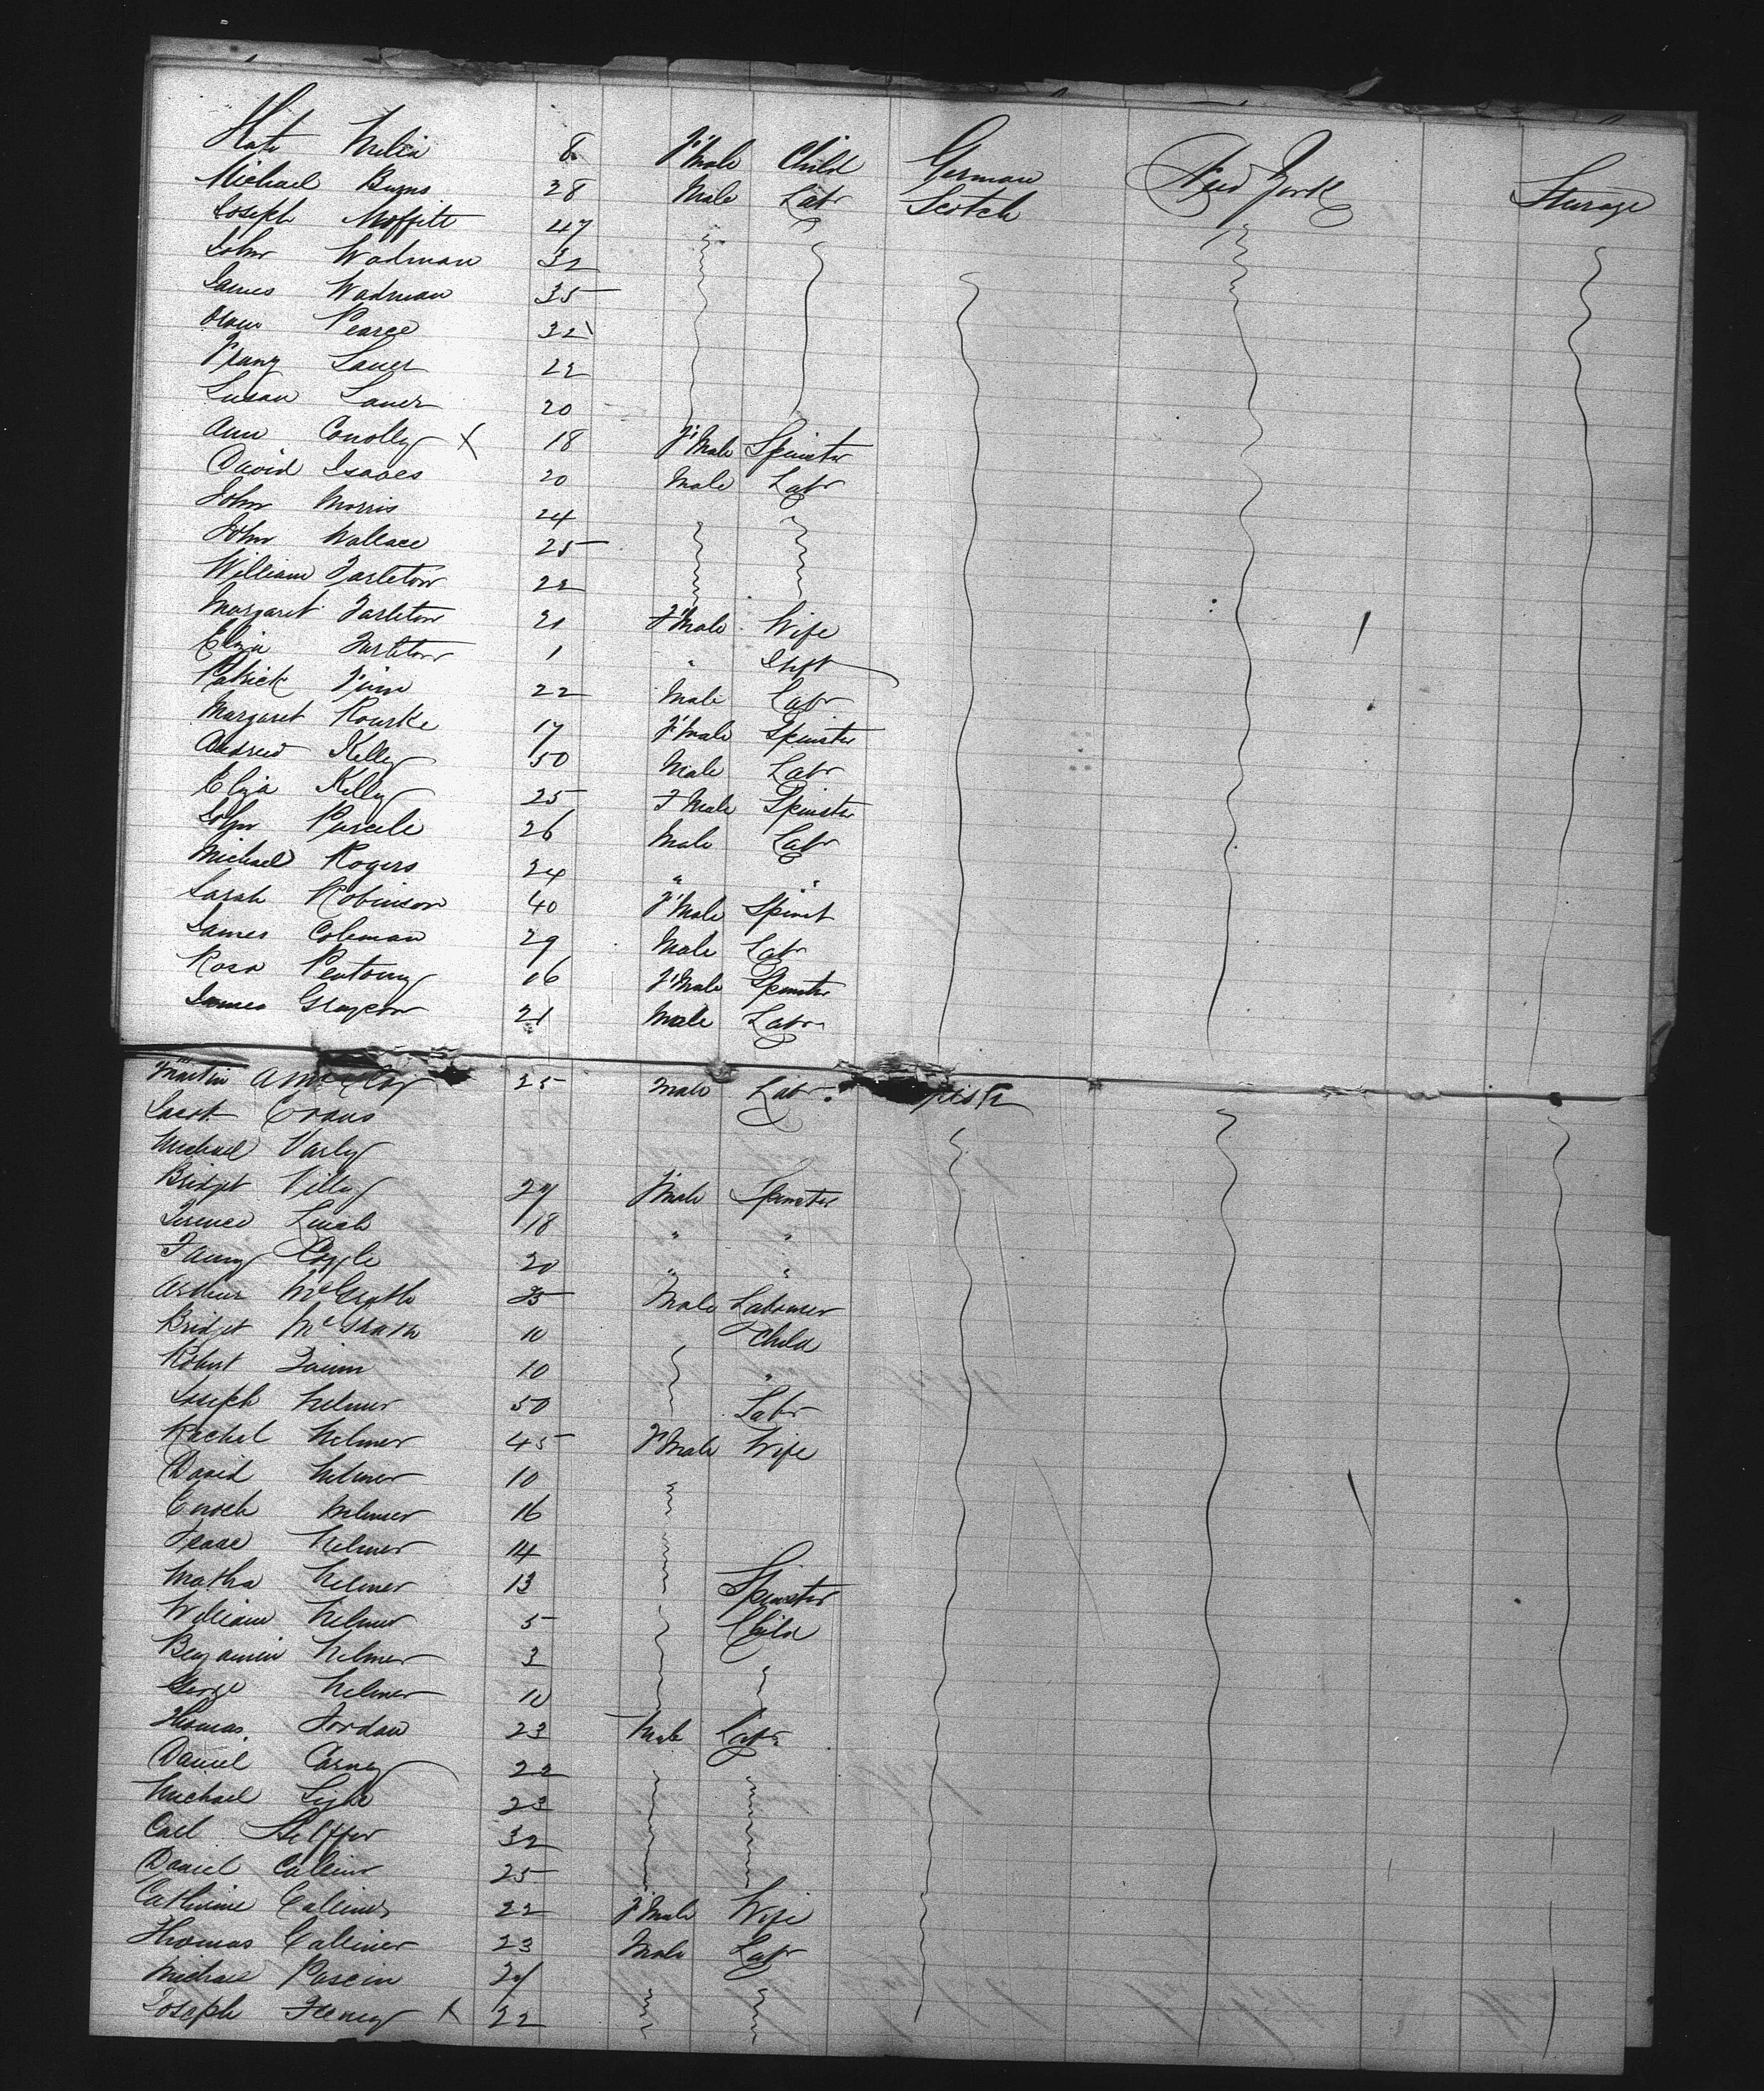 Kate Melia 8 F'Male Child German New York Steerage
Michael Burns 28 Male Labr Scotch
Joseph Moffitt 47
John Wadman 32
James Wadman 35
Owen Pearce 32
Franz Sauer 22
Susan Sauer 20
Ann Conolly X 18 F'Male Spinster
David Isaacs 20 Male Labr
John Morris 24
John Wallace 25
William Tarleton 22
Margaret Tarleton 21 F'Male Wife
Eliza Tarleton 1 " Inft
Patrick Finn 22 Male Labr
Margaret Rourke 17 F'Male Spinster
Andrew Kelly 50 Male Labr
Eliza Kelly 25 F Male Spinster
John Purcele 26 Male Labr
Michael Rogers 24 " "
Sarah Robinson 40 F'Male Spinst
James Coleman 29 Male Labr
Rosa Pentony 16 F'Male Spinster
James Grayson 21 Male Labr
Martin 25 Male Labr
Jacob Evans
Michael Varly
Bridget Villy 27 F'Male Spinster
Terence Linch 18 " "
Fanny Boyle 20 " "
Arthur McGrath 25 Male Labourer
Bridget McGrath 10 " Child
Robert Quinn 10 "
Joseph Helmer 50 Labr
Rachel Helmer 45 F'Male Wife
David Helmer 10
Enoch Helmer 16
Isaac Helmer 14
Matha Helmer 13 Spinster
William Helmer 5 Child
Benjamin Helmer 3
George Helmer 10
Thomas Jordan 23 Male Labr
Daniel Carney 22
Michael Lyne 23
Carl 32
Daniel Callinr 25
Catherine Calliner 22 F'Male Wife
Thomas Calliner 23 Male Labr
Michael Pascin 27
Joseph Feeney X 22